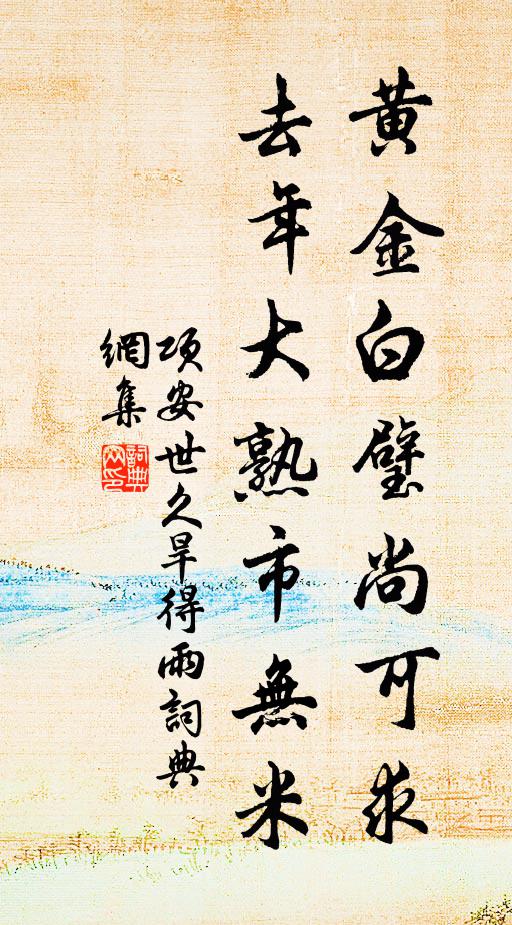 黄金白璧尚可求
去年大熟市無米
項安世久旱得雨詞典
網集
詞典
网印